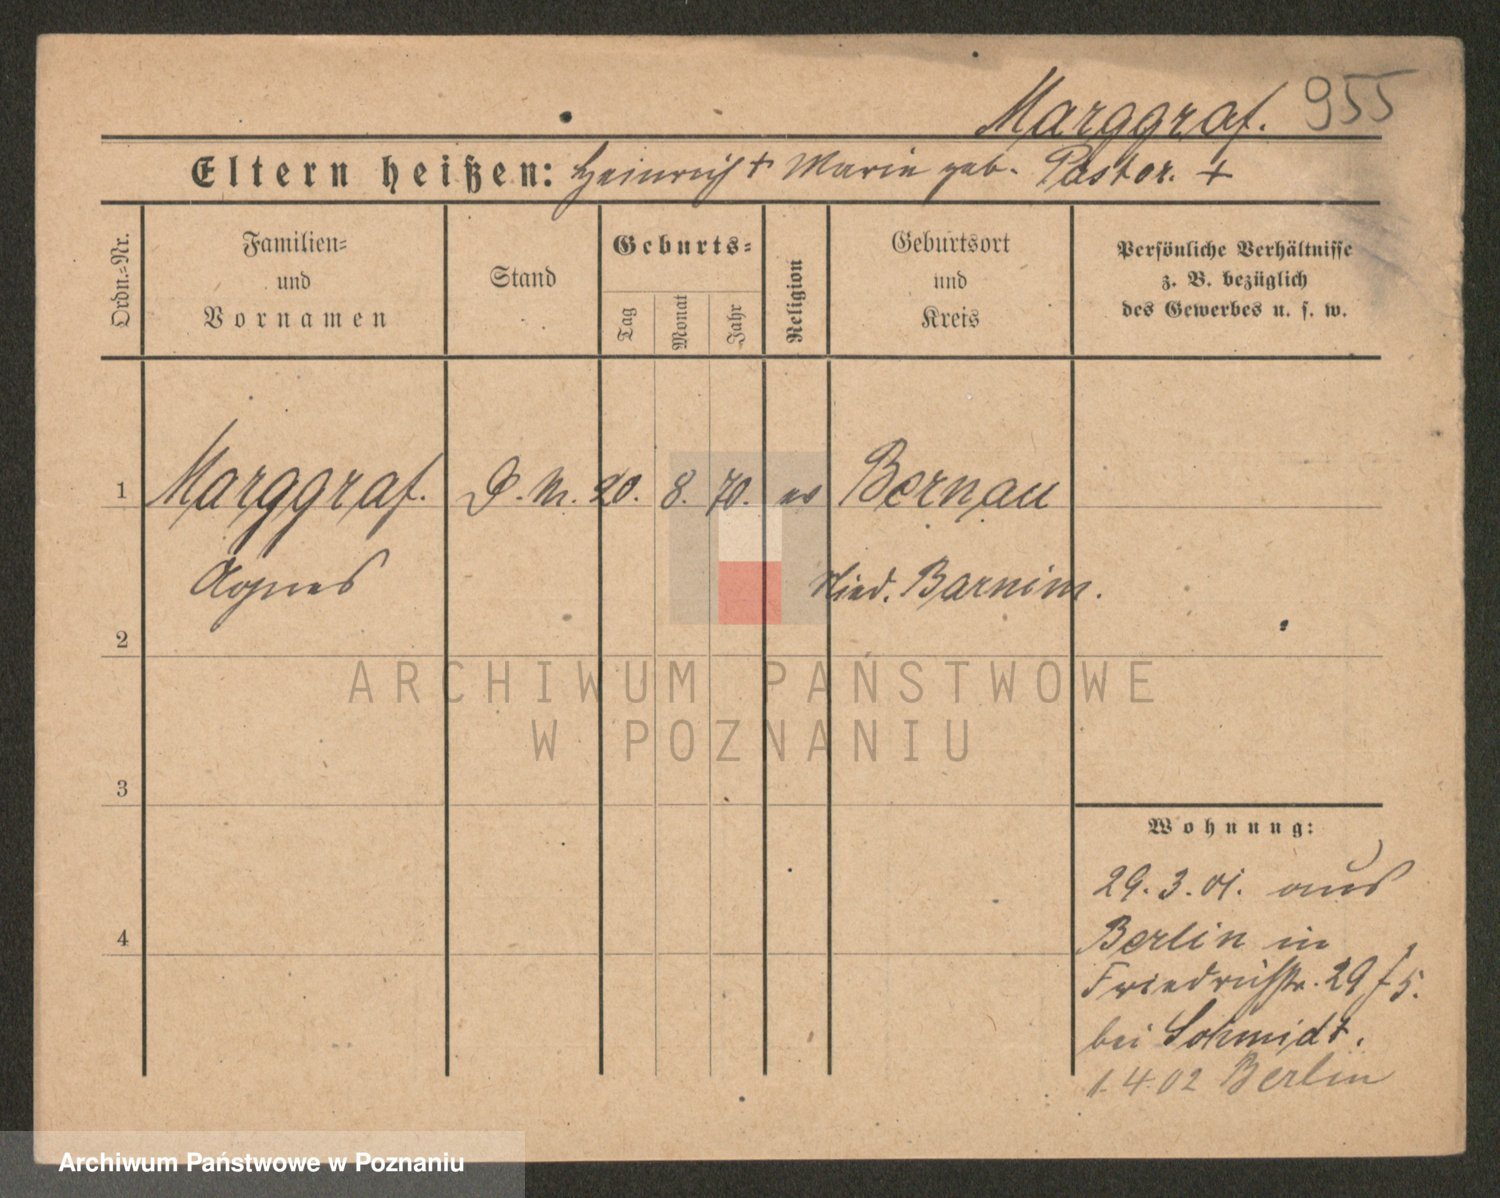 Marggraf. 955
Eltern heißen: Heinrich + Marie geb. Pastor. +
Ordn.-Nr.
Familien-
und
Vornamen
Stand
Geburts-
Tag
Monat
Jahr
Religion
Geburtsort
und
Kreis
Persönliche Verhältnisse
z. B. bezüglich
des Gewerbes u. s. w.
1 Marggraf. D. M. 20. 8. 70. ev Bernau
Agnes Nied. Barnim.
2
3
4
Wohnung:
29. 3. 01. aus
Berlin in
Friedrichstr. 29
bei Schmidt.
1. 4. 02 Berlin
ARCHIWUM PAŃSTWOWE
W POZNANIU
Archiwum Państwowe w Poznaniu